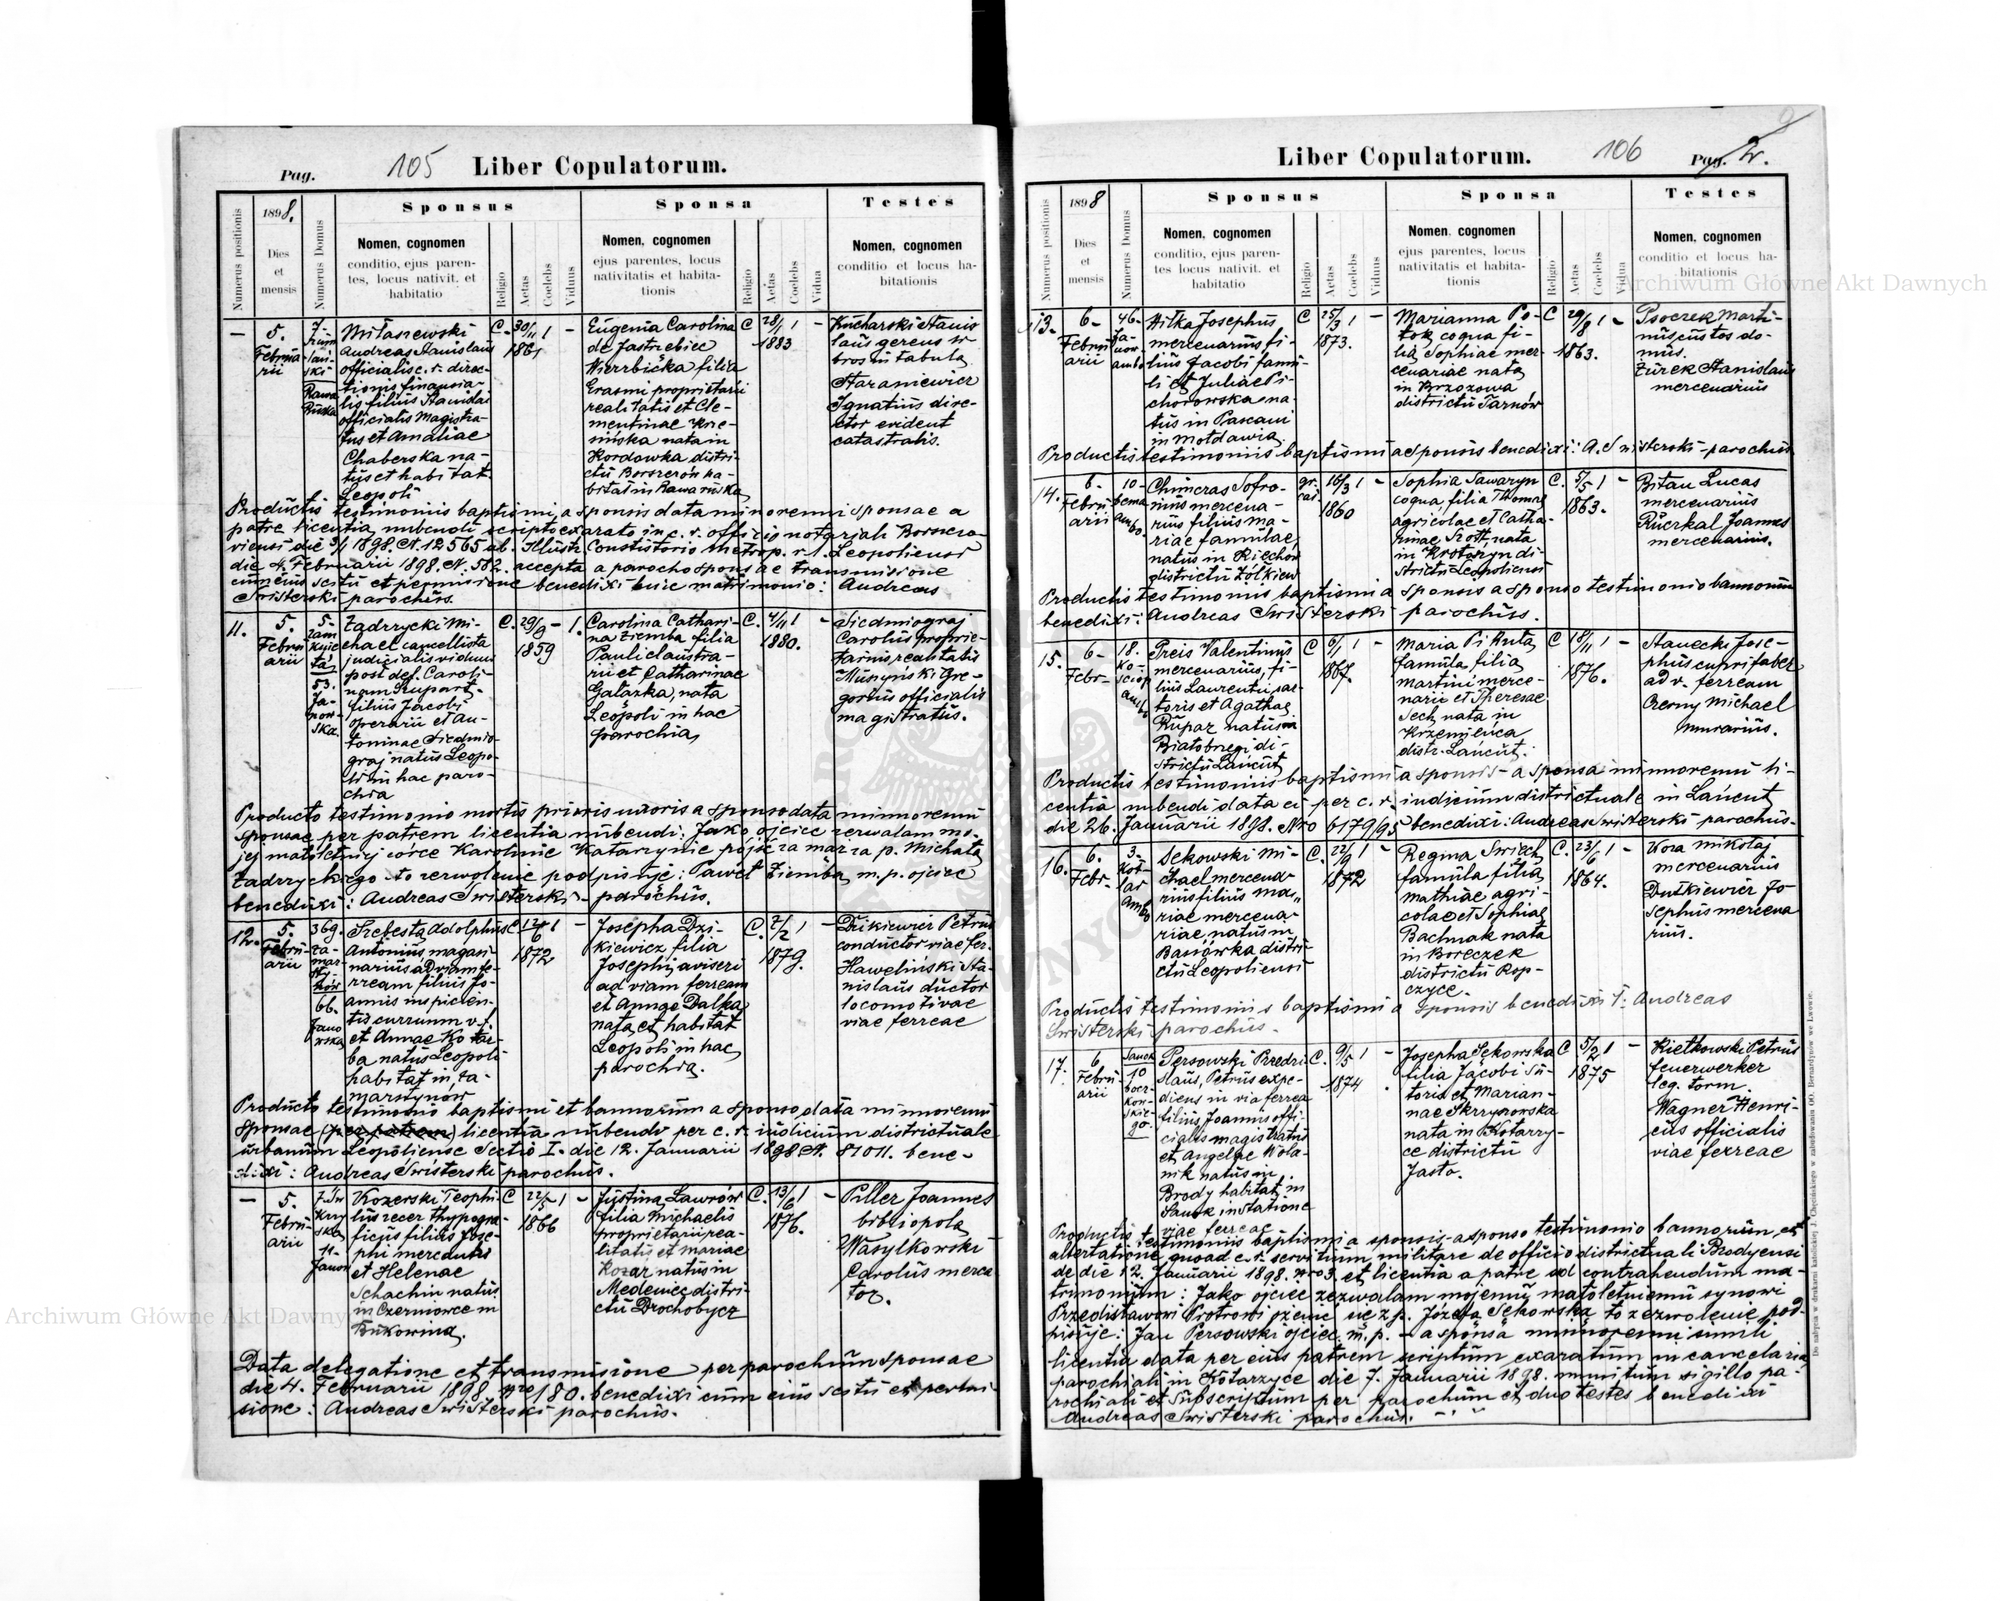 Pag. 105 Liber Copulatorum.
Numerus positionis
1898.
Dies
et
mensis
Numerus Domus
Sponsus
Nomen, cognomen
conditio, ejus paren-
tes, locus nativit. et
habitatio
Religio
Aetas
Coelebs
Viduus
Sponsa
Nomen, cognomen
ejus parentes, locus
nativitatis et habita-
tionis
Religio
Aetas
Coelebs
Vidua
Testes
Nomen, cognomen
conditio et locus ha-
bitationis
—
5.
Februa
rii
7
Rawa
Ruska
Miłaszewski
Andreas Stanislaus
officialis c. r. direc-
tionis financia-
lis filius Stanislai
officialis Magistra-
tus et Amaliae
Chaberska na-
tus et habitat
Leopoli
C.
30/11
1861
1
—
Eugenia Carolina
de Jastrzebiec
Wierzbicka filia
Erasmi proprietarii
realitatis et Cle-
mentinae
nata in
districtu
Borszczów ha-
bitat in Rawa ruska
C
28/1
1883
1
—
Kucharski Stanis
laus gerens li
bros in tabula
Staraniewicz
Ignatius dire-
ctor evident
catastralis.
Productis testimoniis baptismi, a sponsis data minorenni sponsae a
patre licentia nubendi scripto exarato in c. r. officio notarjali Borszczo-
viensi die 3/1 1898. N. 12565 ab Illustr. Constistorio metrop. r. l. Leopoliensi
die 4. Februarii 1898. N. 582. accepta a parocho sponsae transmissione
cum eius scitu et permissione benedixi huic matrimonio: Andreas
Swisterski parochus.
11.
5.
Febru
arii
5-
zam
knie
ta
53.
Ja-
now-
ska.
Zadrzycki Mi-
chael cancellista
judicialis viduus
post def. Caroli-
nam Rupart-
filius Jacobi
operarii et An-
toninae Siedmio-
graj natus Leopo-
li in hac paro-
chia
C.
29/9
1859
—
1.
Carolina Cathari-
na Ziemba filia
Pauli claustra-
rii et Catharinae
Galazka, nata
Leopoli in hac
parochia,
C.
4/11
1880.
1
—
Siedmiograj
Carolus proprie-
tarius realitatis
Muszyński Gre-
gorius officialis
magistratus.
Producto testimonio mortis prioris uxoris a sponso data minorenni
sponsae per patrem licentia nubendi: Jako ojciec zezwalam mo-
jej małoletniej córce Karolinie Katarzynie pójść za mąż za p. Michała
Zadrzyckiego to zezwolenie podpisuję: Paweł Ziemba, m. p. ojciec
benedixi: Andreas Swisterski - parochus.
12.
5.
Febru-
arii
369.
za-
mar-
sty-
nów
66.
Jano
wska
Srebesta Adolphus
Antonius, magazi-
narius ad viam fe-
rream filius Jo-
annis inspicien-
tis curruum v. f.
et Annae Kotar-
ba natus Leopoli
habitat in, Za-
marstynow
C
12/6
1872
1
—
Josepha Dzi-
kiewicz filia
Josephi, aviseri
ad viam ferream
et Annae Dalka,
nata et habitat
Leopoli in hac
parochia.
C.
2/2
1879.
1
—
Dzikiewicz Petrus
conductor viae fer.
Haweliński Sta-
nislaus ductor
locomotivae
viae ferreae
Producto testimonio baptismi et bannorum a sponso, data minorenni
sponsae (per patrem) licentia nubendi per c. r. iudicium districtuale
urbanum Leopoliense Sectio I. die 12. Januarii 1898 N. 81011. bene-
dixi: Andreas Swisterski parochus.
—
5.
Febru
arii
11-
Janow
Kozerski Teophi-
lus
filius Jose-
phi mercantis
et Helenae
Schachin natus
in Czerniowce in
Bukowina.
C
22/5
1866
1
—
Justina Lawrów
filia Michaelis
proprietarii rea-
litatis et Mariae
Kozar natus in
Medenice distri-
ctu Drochobycz
C.
13/6
1876.
1
—
Piller Joannes
bibliopola
Wasylkowski
Carolus merca
tor.
Data delegatione et transmissione per parochum sponsae
die 4. Februarii 1898. Nro 180. benedixi cum eius scitu et permi-
sione: Andreas Swisterski parochus.
Liber Copulatorum. 106 Pag.
Numerus positionis
1898
Dies
et
mensis
Numerus Domus
Sponsus
Nomen, cognomen
conditio, ejus paren-
tes locus nativit. et
habitatio
Religio
Aetas
Coelebs
Viduus
Sponsa
Nomen, cognomen
ejus parentes, locus
nativitatis et habita-
tionis
Religio
Aetas
Coelebs
Vidua
Testes
Nomen, cognomen
conditio et locus ha-
bitationis
13.
6-
Febru
arii
46-
Ja-
now
ambo
Hilka Josephus
mercenarius fi-
lius Jacobi famu-
li et Juliae Pi-
chorowska na-
tus in Pascani
in Mołdawia.
C
25/3
1873.
1
—
Marianna Po-
tok coqua fi-
lia Sophiae mer-
cenariae nata
in Brzozowa
districtu Tarnów
C
29/8
1863.
1
—
Psoczek Marti-
nus custos do-
mus.
Zurek Stanislaus
mercenarius
Productis testimoniis baptismi a sponsis benedixi: A. Swisterski - parochus.
14.
6-
Febru
arii
10-
bema
ambo
Chimeras Sofro-
nius mercena-
rius filius Ma-
riae famulae,
natus in
districtu Żółkiew
gr.
cat
16/3
1860
1
—
Sophia Sawaryn
coqua filia Thomae
agricolae et Catha-
rinae Szott, nata
in Krotoszyn di-
strictu Leopoliensi
C.
5/5
1863.
1
—
Bitau Lucas
mercenarius
Ruczkal Joannes
mercenarius.
Productis testimoniis baptismi a sponsis a sponso testimonio bannorum
benedixi: Andreas Swisterski parochus.
15.
6-
Febr-
18.
Ko-
sciop
ambo
Preis Valentinus
mercenarius, fi-
lius Laurentii sar-
toris et Agathae
Kupaz natus in
Białobrzegi di-
strictu Łańcut
C
6/1
1867.
1
—
Maria Pikuta
famula filia
Martini merce-
narii et Theresae
Sech, nata in
Krzemienica
distr. Łańcut.
C
18/11
1876.
1
—
Stanecki Jose-
phus cuprifaber
ad v. ferream
Czerny Michael
murarius.
Productis testimoniis baptismi a sponsis - a sponsa minorenni li-
centia nubendi data ei per c. r. iudicium districtuale in Łańcut
die 26. Januarii 1898. Nro 6179/95 benedixi: Andreas Swisterski parochus-
16.
6.
Febr-
3.
Kot-
lar
ambo
Sekowski Mi-
chael mercena-
rius filius Ma-
riae mercena-
riae natus in
Basiówka distri-
ctu Leopoliensi
C.
22/9
1872
1
—
Regina Swiech,
famula filia
Mathiae agri-
colae et Sophiae
Bachnak nata
in Boreczek
districtu Rop-
czyce
C.
23/6
1864.
1
—
Koza Mikołaj
mercenarius
Dutkiewicz Jo-
sephus mercena
rius.
Productis testimoniis baptismi a sponsis benedixit: Andreas
Swisterski parochus-
17.
6
Febru
arii
Sanok
10
bocz-
kow-
skie-
go.
Persowski Przedzi
slaus, Petrus expe-
diens in via ferrea
filius Joannis offi-
cialis magistratus
et Angelae Wola-
nik natus in
Brody habitat, in
Sanok in statione
viae ferreae
C.
9/5
1874
1
—
Josepha Sękowska
filia Jacobi Su-
toris et Marian-
nae Skrzynowska
nata in Kołaczy-
ce districtu
Jasło.
C
5/2
1875
1
—
Kiełkowski Petrus
feuerwerker
leg. torm.
Wagner Henri-
cus officialis
viae ferreae
Productis testimoniis baptismi a sponsis - a sponso testimonio bannorum, et
attestatione quoad c. r. servitium militare de officio districtuali Brodyensi
de die 12. Januarii 1898. Nro 3. et licentia a patre ad contrahendum ma-
trimonium: Jako ojciec zezwalam mojemu małoletniemu synowi
Przedisławowi Piotrowi ożenić się z p. Józefą Sękowską, to zezwolenie pod-
pisuję: Jan Persowski ojciec m. p. - a sponsa minorenni simili
licentia data per eius patrem scriptum exaratum in cancelaria
parochiali in Kołaczyce die 7. Januarii 1898. munitum sigillo pa-
rochiali et subscriptum per parochum et duo testes benedixi
Andreas Swisterski parochus.
Do nabycia w drukarni katolickiej J. Chęcińskiego w zabudowaniu OO. Bernardynów we Lwowie.
Archiwum Główne Akt Dawnych
Archiwum Główne Akt Dawnych